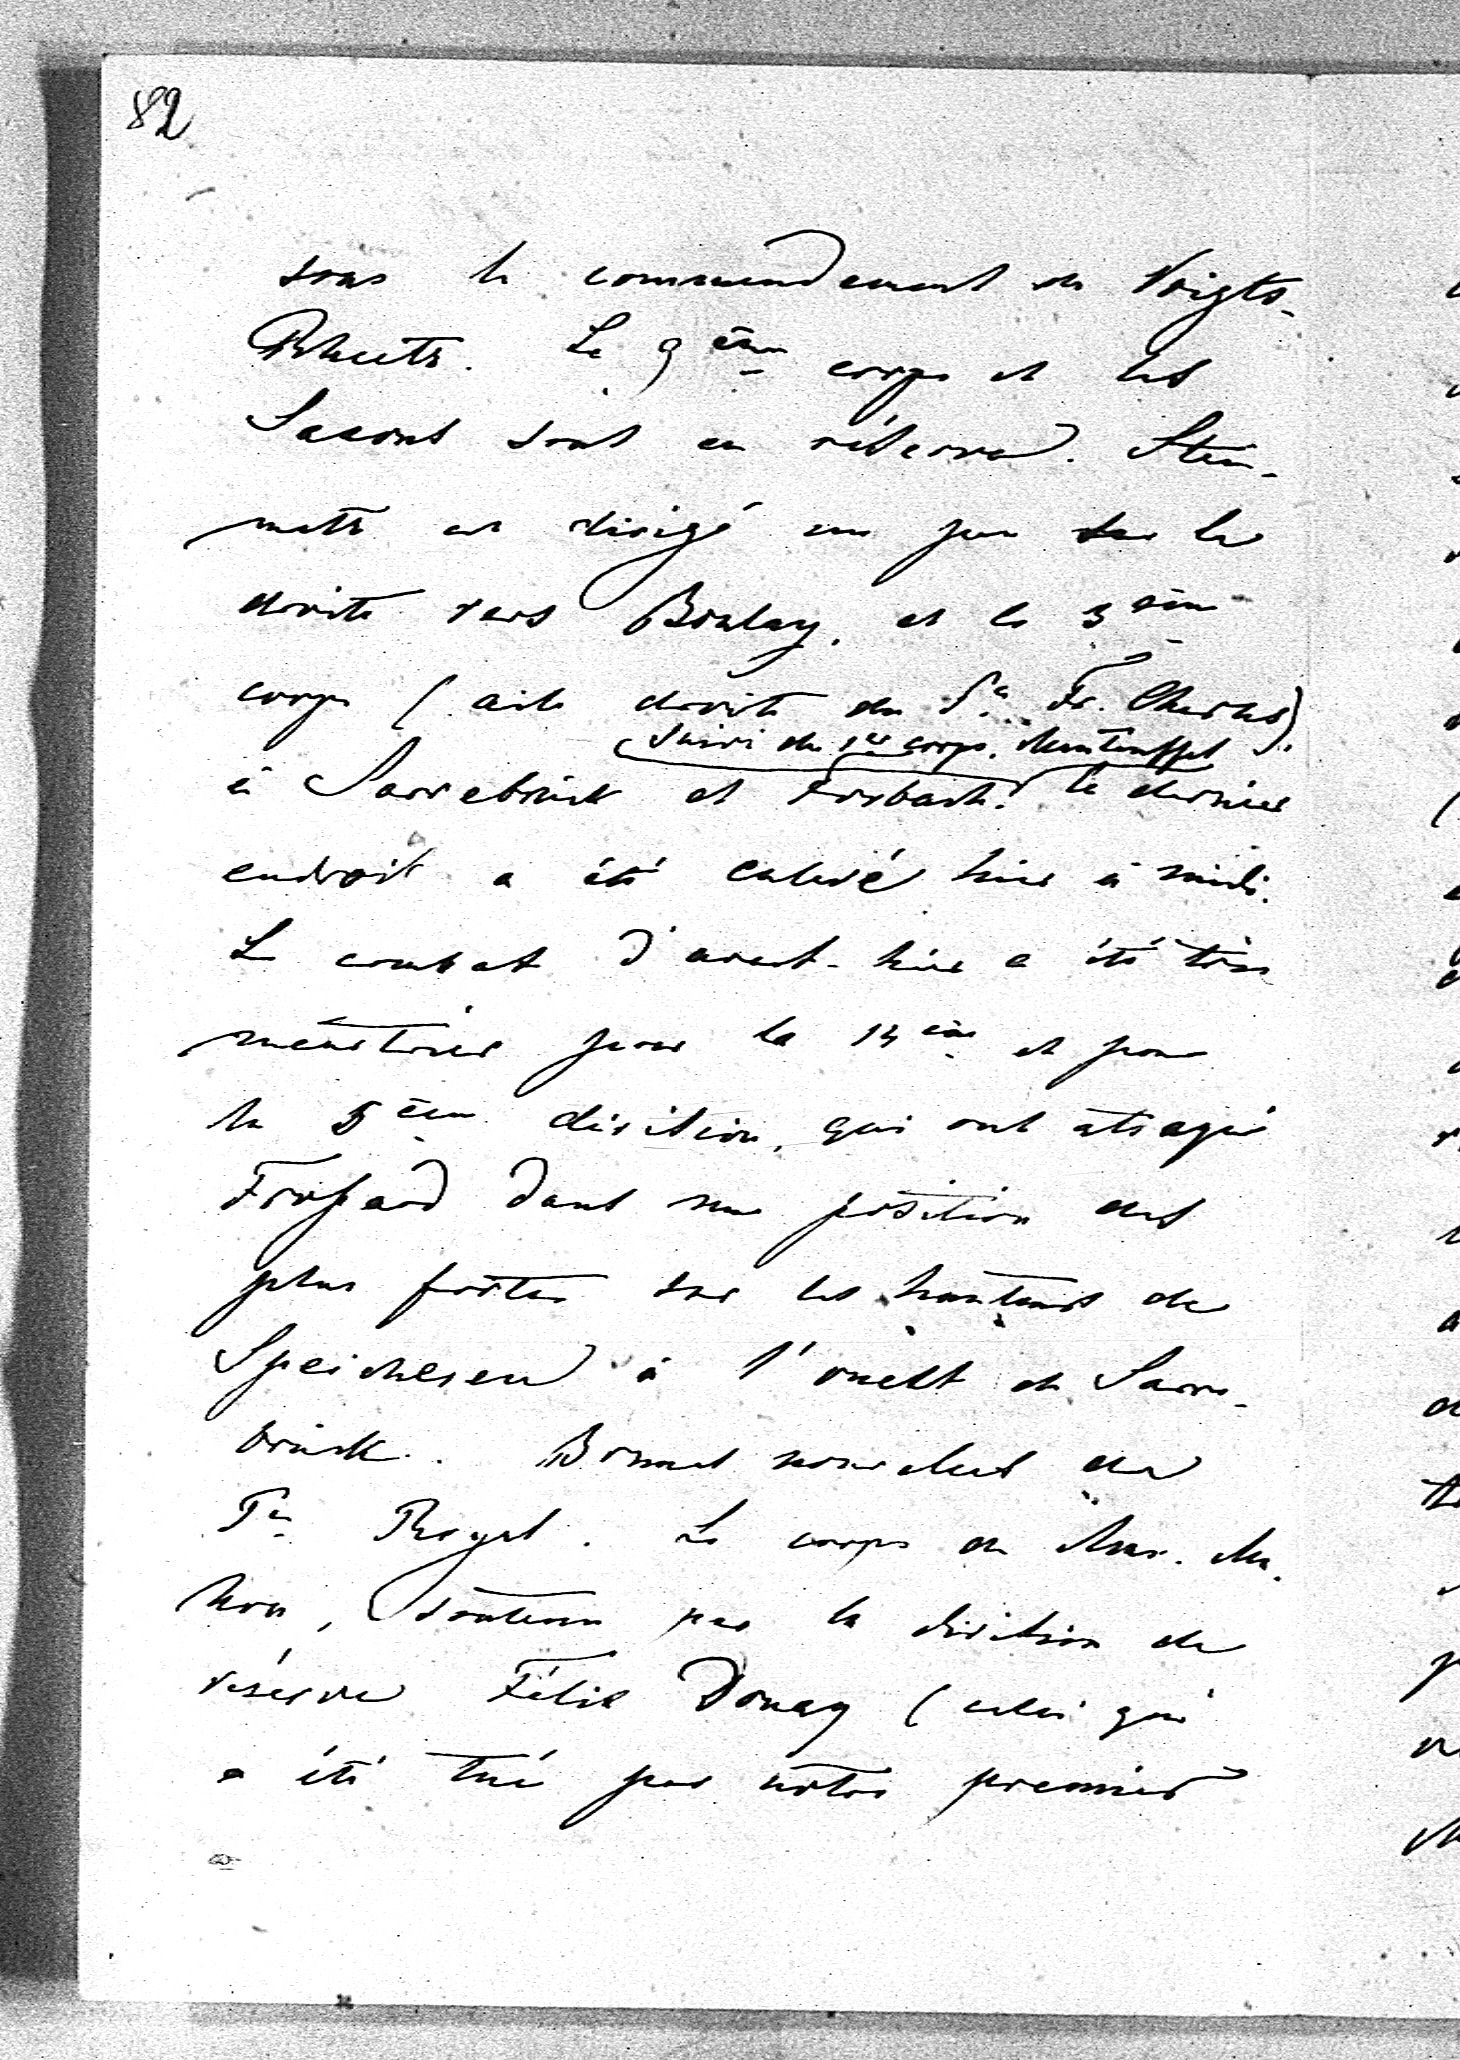 82
sous le commandement de Voigts-
Rhetz. Le 9ème corps et les
Saxons sont en réserve. Stein-
metz est dirigé un peu sur la
droite vers Boulay, et le 3ème
corps (aile droite du Pce Fr. Charles)
suivi du 1er corps. Manteuffel
à Sarrebrück et Forbach. Ce dernier
endroit a été enlevé hier à midi.
Le combat d'avant-hier a été très
meurtrier pour la 14ème et pour
la 5ème division, qui ont attaqué
Frossard dans une position des
plus fortes sur les hauteurs de
Speicheren à l'ouest de Sarre-
brück. Bonnes nouvelles du
Pce Royal. Le corps de Mac-Ma-
hon, soutenu par la division de
réserve Félix Douay (celui qui
a été tué par notre premier